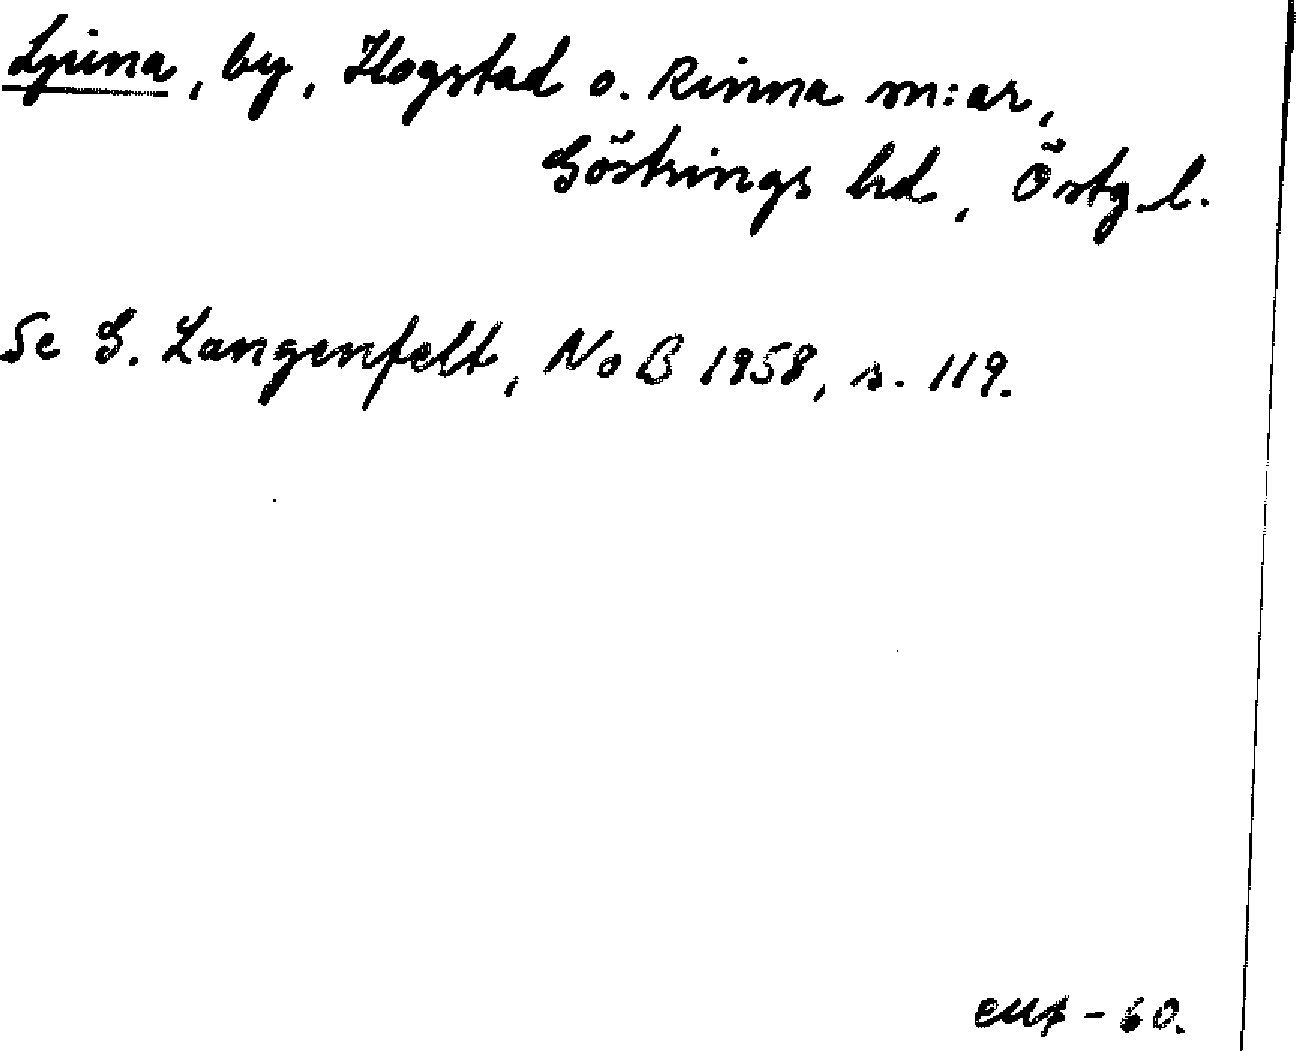 Ljuna, by, Hogstad o. Rinna sn:ar,
Göstrings hd, Östg.l.
Se G. Langenfelt, NoB 1958, s. 119.
-60.